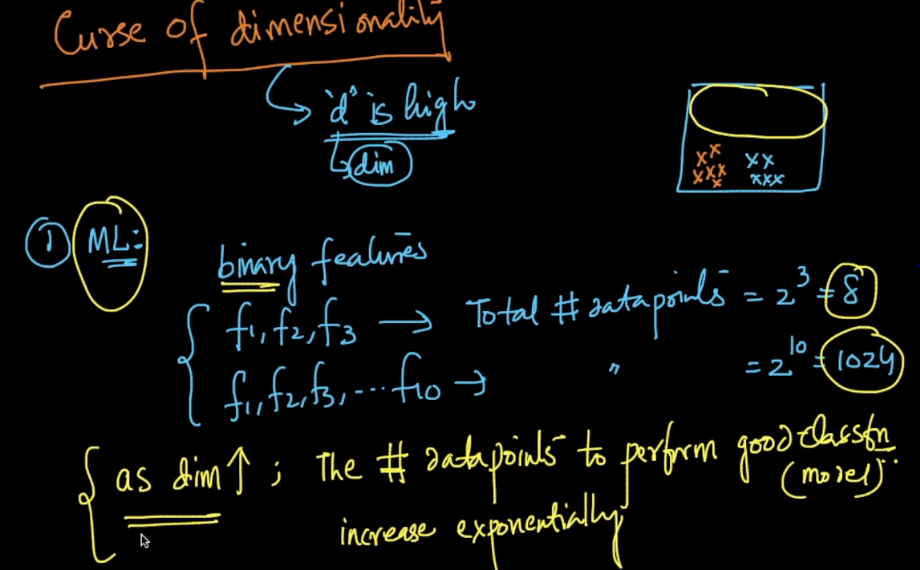 Curse of dimensionality
'd' is high
dim
① ML:
binary features
f1, f2, f3 → Total # datapoints = 2^3 = 8
f1, f2, f3, ... f10 → " = 2^10 = 1024
as dim ↑ ; The # datapoints to perform good classfn
(model)
increase exponentially